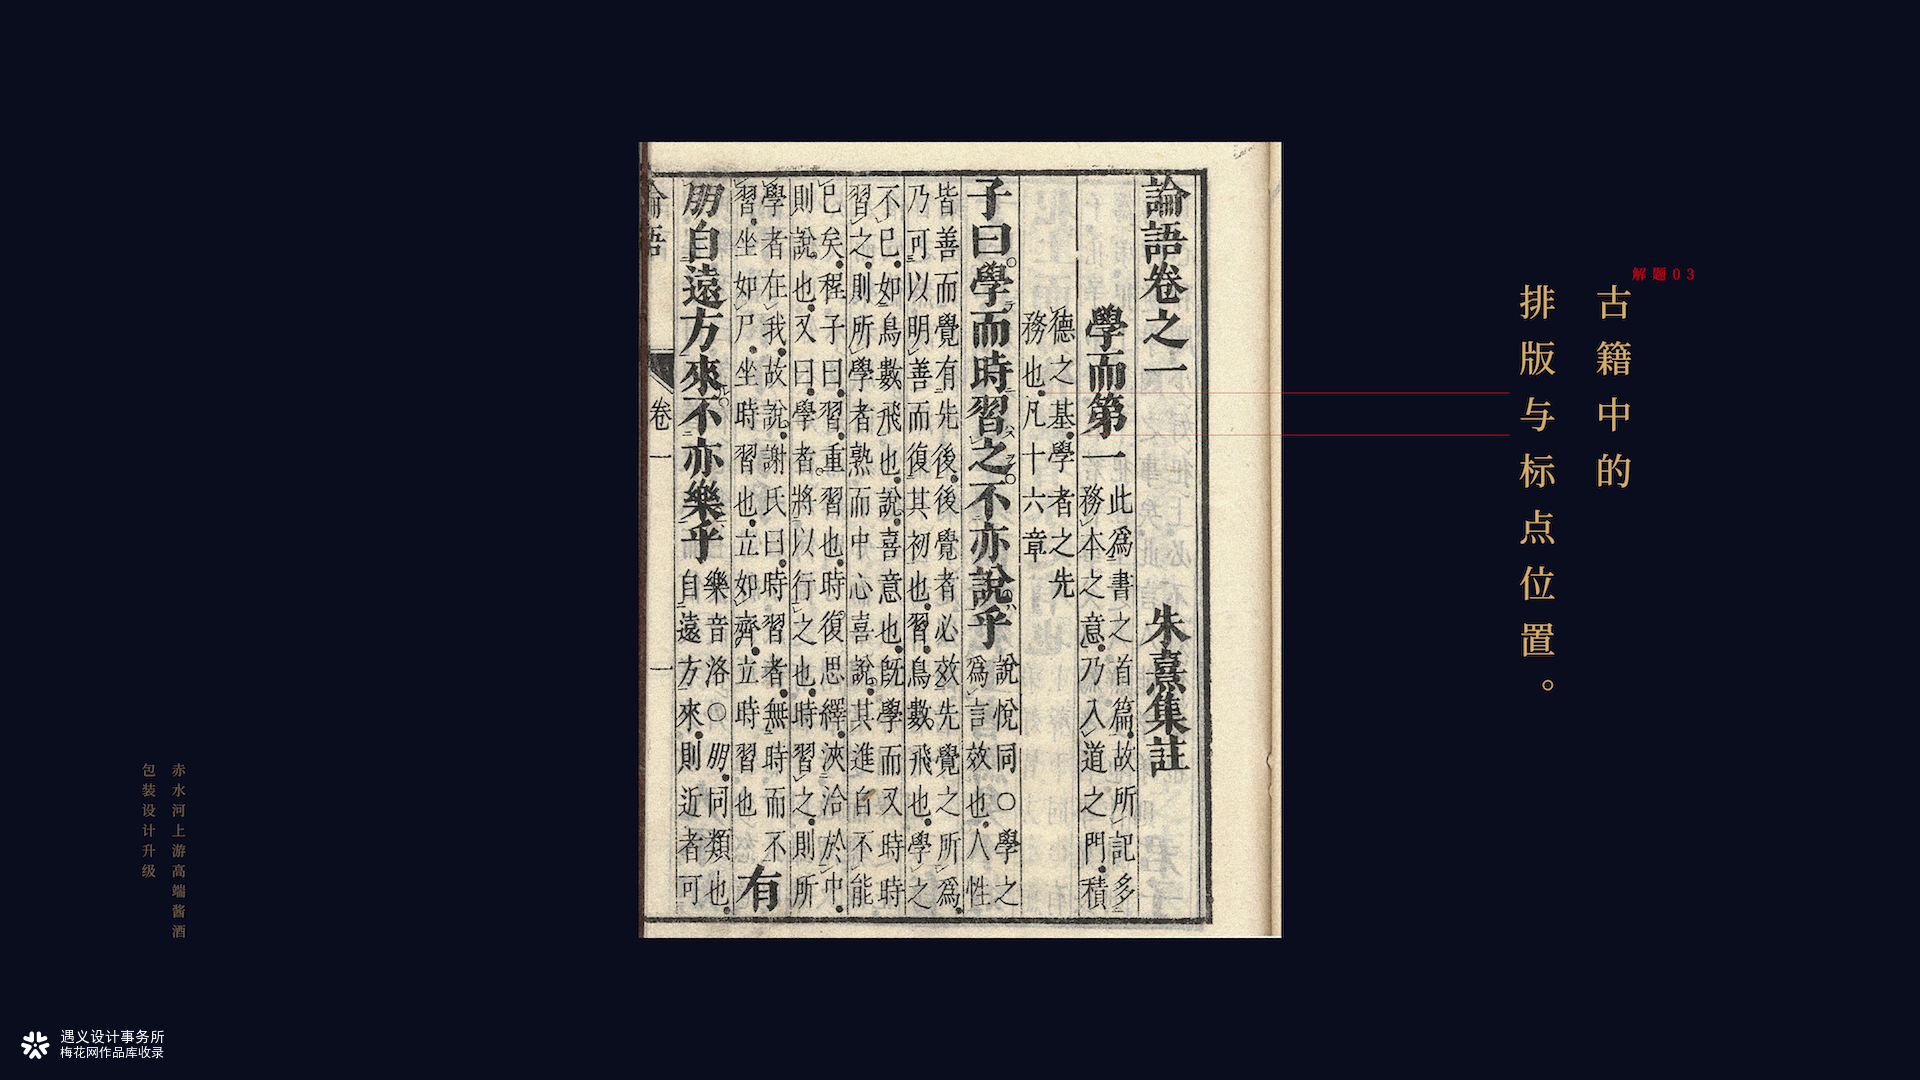 解题03
古籍中的
排版与标点位置。
論語卷之一 朱熹集註
學而第一
此爲書之首篇故所記多
務本之意乃入道之門積
德之基學者之先
務也凡十六章
子曰學而時習之不亦說乎
說悅同○學之
爲言效也人性
皆善而覺有先後後覺者必效先覺之所爲
乃可以明善而復其初也習鳥數飛也學之
不已如鳥數飛也說喜意也旣學而又時時
習之則所學者熟而中心喜說其進自不能
已矣程子曰習重習也時復思繹浹洽於中
則說也又曰學者將以行之也時習之則所
學者在我故說謝氏曰時習者無時而不
習坐如尸坐時習也立如齊立時習也
有
朋自遠方來不亦樂乎
樂音洛○朋同類也
自遠方來則近者可
論語 卷一 一
赤水河上游高端酱酒
包装设计升级
遇义设计事务所
梅花网作品库收录